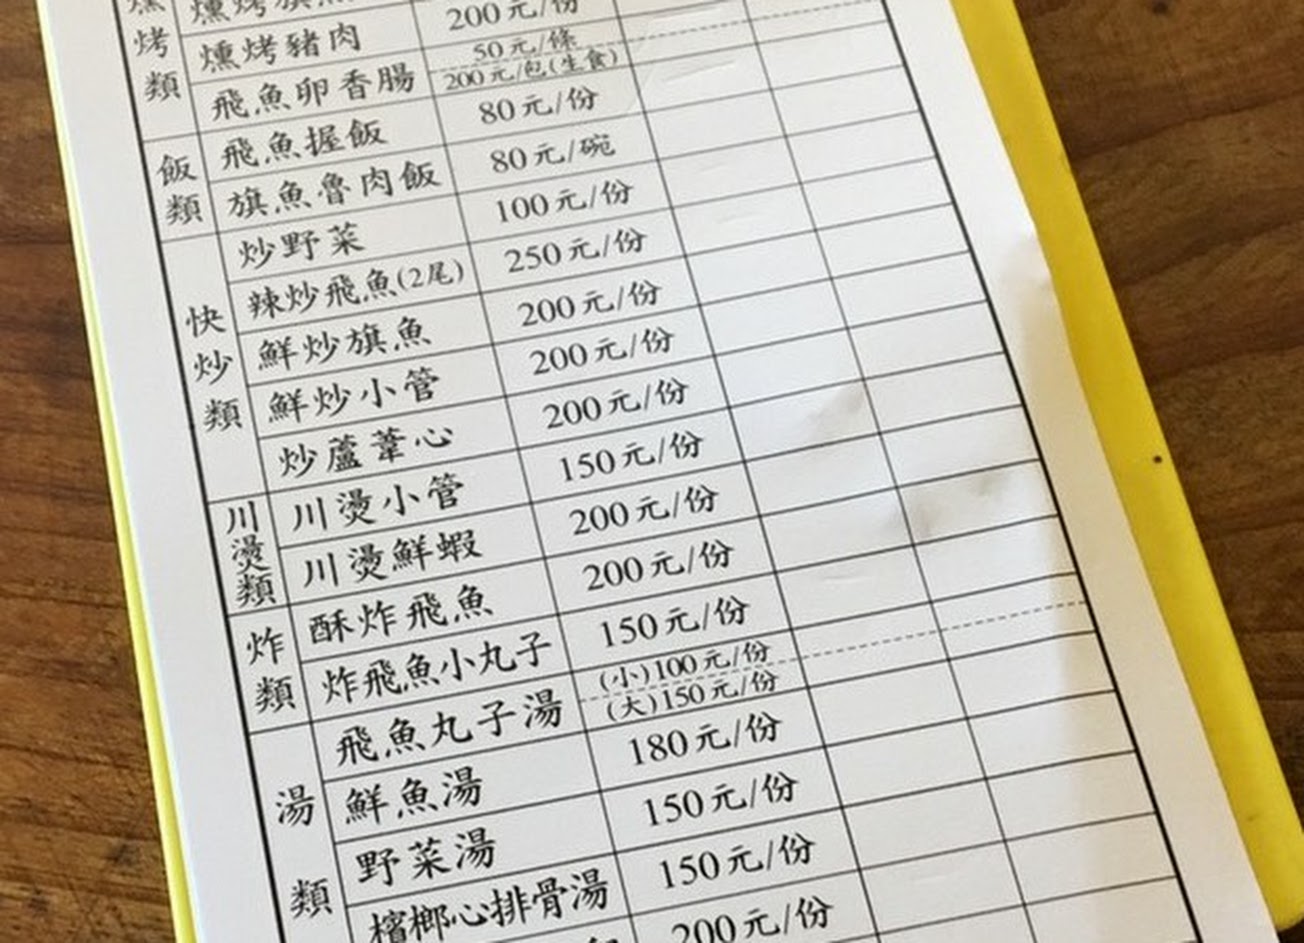 烤類
燻烤豬肉 200元/份
飛魚卵香腸 50元/條
200元/包(生食)
飯類
飛魚握飯 80元/份
旗魚魯肉飯 80元/碗
快炒類
炒野菜 100元/份
辣炒飛魚(2尾) 250元/份
鮮炒旗魚 200元/份
鮮炒小管 200元/份
炒蘆葦心 200元/份
川燙類
川燙小管 150元/份
川燙鮮蝦 200元/份
炸類
酥炸飛魚 200元/份
炸飛魚小丸子 150元/份
湯類
飛魚丸子湯 (小)100元/份
(大)150元/份
鮮魚湯 180元/份
野菜湯 150元/份
檳榔心排骨湯 150元/份
200元/份